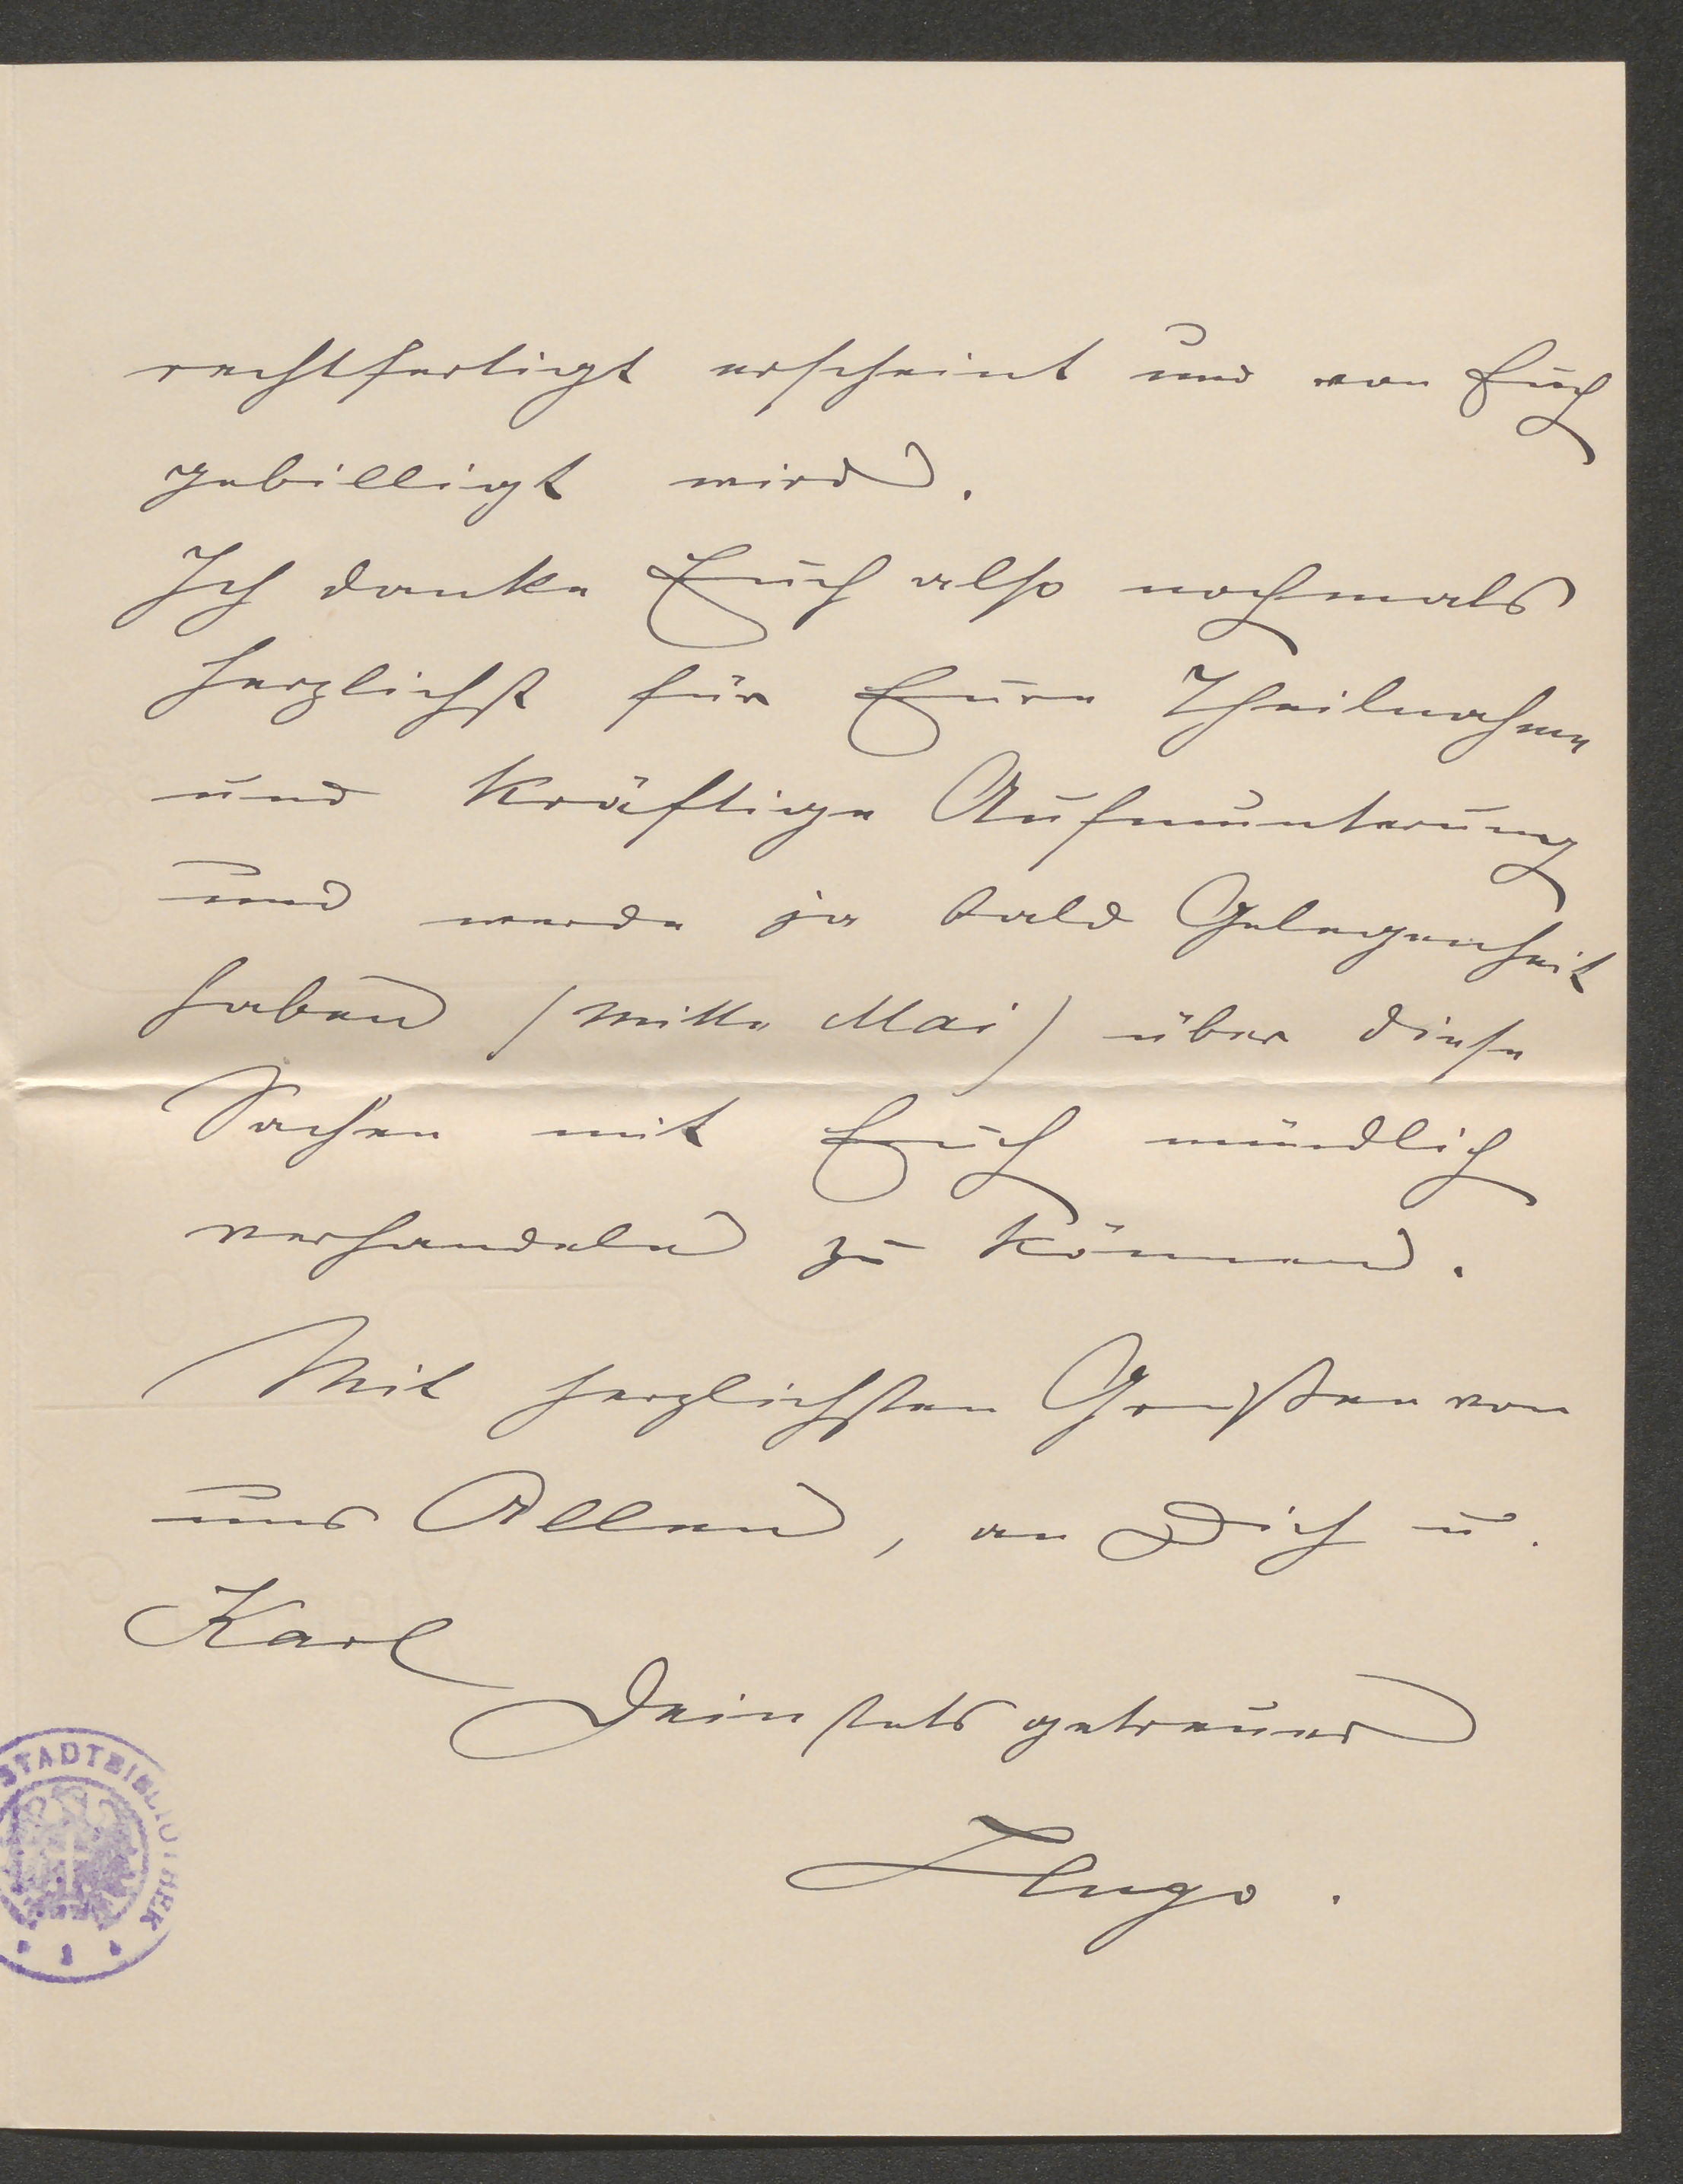 rechtfertigt erscheint und von Euch
gebilligt wird.
Ich danke Euch also nochmals
herzlichst für Eure Theilnahme
und kräftige Aufmunterung
und werde ja bald Gelegenheit
haben (Mitte Mai) über diese
Sachen mit Euch mündlich
verhandeln zu können.
Mit herzlichsten Grüßen von
uns Allen, an Dich u.
Karl
Dein stets getreuer
Hugo.
STADTBIBLIOTHEK